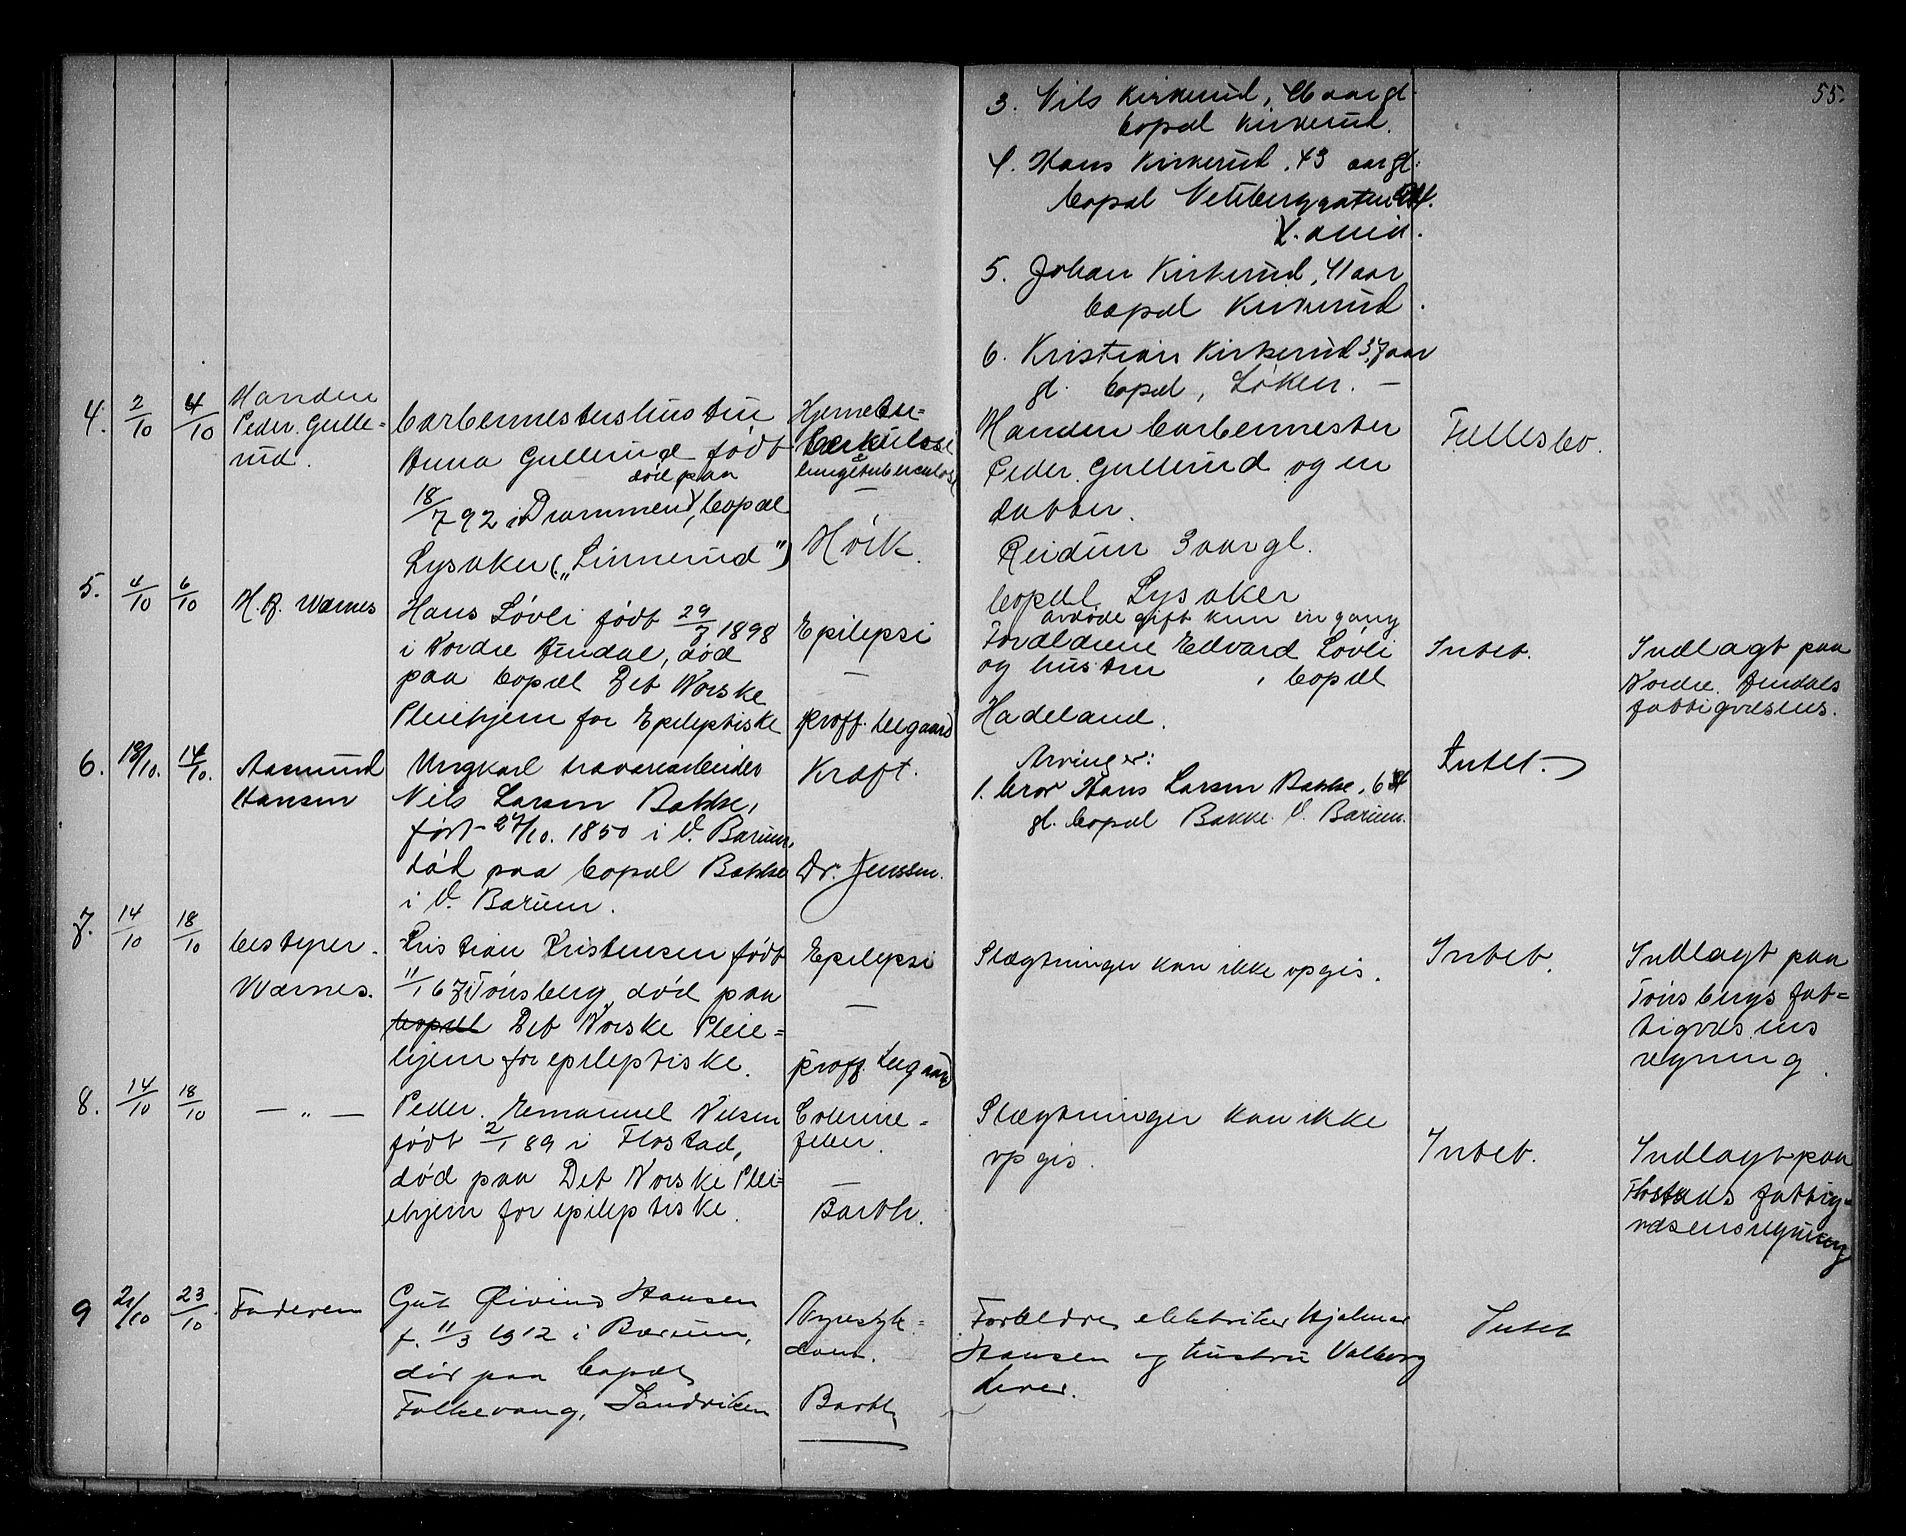 55.
3. Nils Kirkerud, 46 aar gl.
bopæl Kirkerud.
4. Hans Kirkerud, 43 aar gl.
bopæl
5. Johan Kirkerud, 41 aar
bopæl Kirkerud.
6. Kristian Kirkerud 37 aar
gl. bopæl, Løken. –
4. 2/10 4/10
Manden
Peder Gulle-
rud.
barbermestershustru
Anna Gullerud født
død paa
18/7 92 i Drammen, bopæl
Lysaker („Linnerud")
Hjernetu-
berkulose
lungetuberculose
–
Høik.
Manden barbermester
Peder Gullerud og en
datter.
Reidun 3 aar gl.
bopæl Lysaker
avdøde gift kun en gang
Fellesbo.
5. 4/10 6/10
H. B. Wærnes
Hans Løvli født 29/7 1898
i Nordre Aurdal, død
paa bopæl Det Norske
Pleiehjem for Epileptiske
Epilepsi
–
proff. Leegaard
Forældrene Edvard Løvli
og hustru , bopæl
Hadeland.
Intet.
Indlagt paa
Nordre Aurdals
fattigvæsens.
6. 13/10. 14/10.
Aasmund
Hansen
Ungkarl travarearbeider
Nils Larsen Bakke,
født 27/10. 1850 i V. Bærum,
død paa bopæl Bakke
i V. Bærum.
Kræft.
Dr. Jenssen.
Arvinger:
1. bror Hans Larsen Bakke,
gl. bopæl Bakke V. Bærum.
Intet.
7. 14/10 18/10
bestyrer
Wærnes.
Kristian Kristensen født
11/1 67 i Tønsberg død paa
bopæl Det Norske Pleie-
hjem for epileptiske.
Epilepsi
–
proff Leegaard
Slægtninger kan ikke opgis.
Intet.
Indlagt paa
Tønsbergs fat-
tigvæsens
regning.
8. 14/10 18/10
— „ —
Peder Emanuel Nilsen
født 2/1 89 i Flostad,
død paa Det Norske Plei-
ehjem for epileptiske.
feber.
–
Barth.
Slægtninger kan ikke
opgis.
Intet.
Indlagt paa
Flostads fattig-
væsens regning
9 21/10 23/10.
Faderen
Gut Øivind Hansen
f. 11/3 1912 i Bærum,
død paa bopæl
Folkevang, Sandviken
Nyresyk-
dom.
Barth
Forældre elektriker Hjalmar
Hansen og hustru Valborg
lever.
Intet